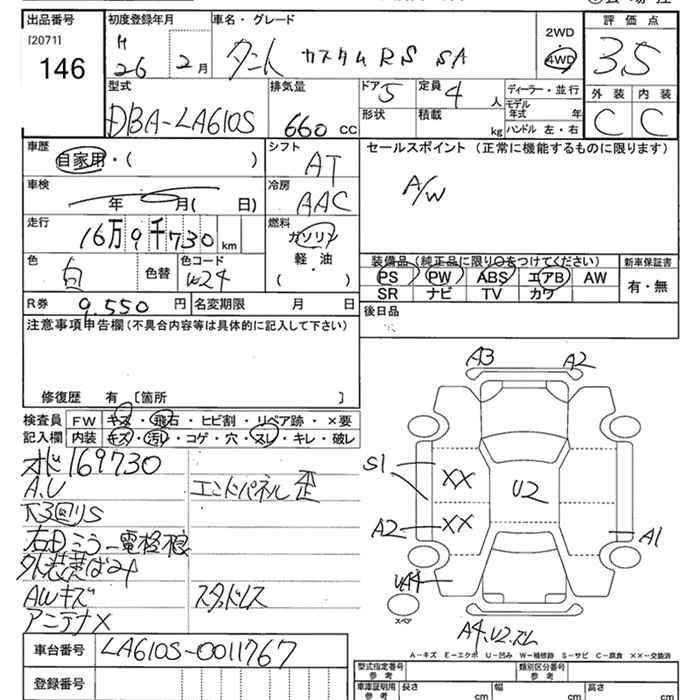 出品番号 初度登録年月 車名・グレード 評価点
[2071]
146
H 26 2月 タント カスタム RS SA
2WD
4WD
3.5
外装 内装
C C
型式 排気量 ドア 定員 ディーラー・並行
DBA-LA610S 660 cc 5 4人
形状 積載 kg モデル年式 年
ハンドル 左・右
車歴 シフト セールスポイント (正常に機能するものに限ります)
自家用・( ) AT
A/W
車検 冷房
年 月( 日) AAC
走行 燃料
16万9千730 km ガソリン
軽・油
( ・ )
色 色替 色コード
白 W24
装備品 (純正品に限り○をつけてください) 新車保証書
PS PW ABS エアB AW 有・無
SR ナビ TV カワ
R券 9.550 円 名変期限 月 日
後日品
注意事項申告欄 (不具合内容等は具体的に記入して下さい)
修復歴 有 [箇所 ]
検査員 FW キズ・飛石・ヒビ割・リペア跡・×要
記入欄 内装 キズ・汚レ・コゲ・穴・スレ・キレ・破レ
オド169730
A.U エンドパネル歪
下3回りS
AWキズ スタッドレス
アンテナX
A3 A2
S1 XX U2
A2 XX A1
UA4
スペア
A4.U2.スレ
A-キズ E-エクボ U-凹み W-補修跡 S-サビ C-腐食 ××-交換済
車台番号 LA610S-0011767
登録番号
型式指定番号 参考 類別区分番号 参考
車庫証明用 参考 長さ cm 幅 cm 高さ cm